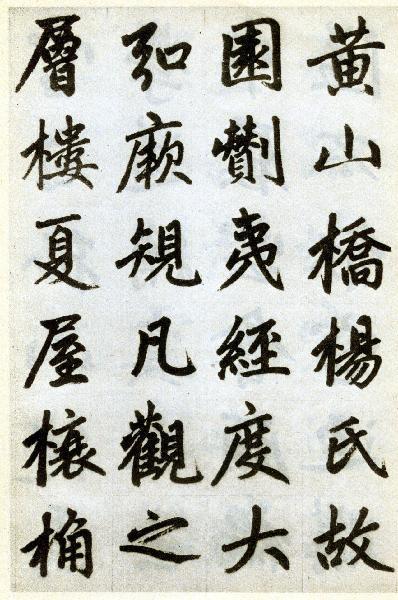 黃山橋楊氏故
園劗夷經度大
弘厥規凡觀之
層樓夏屋榱桷